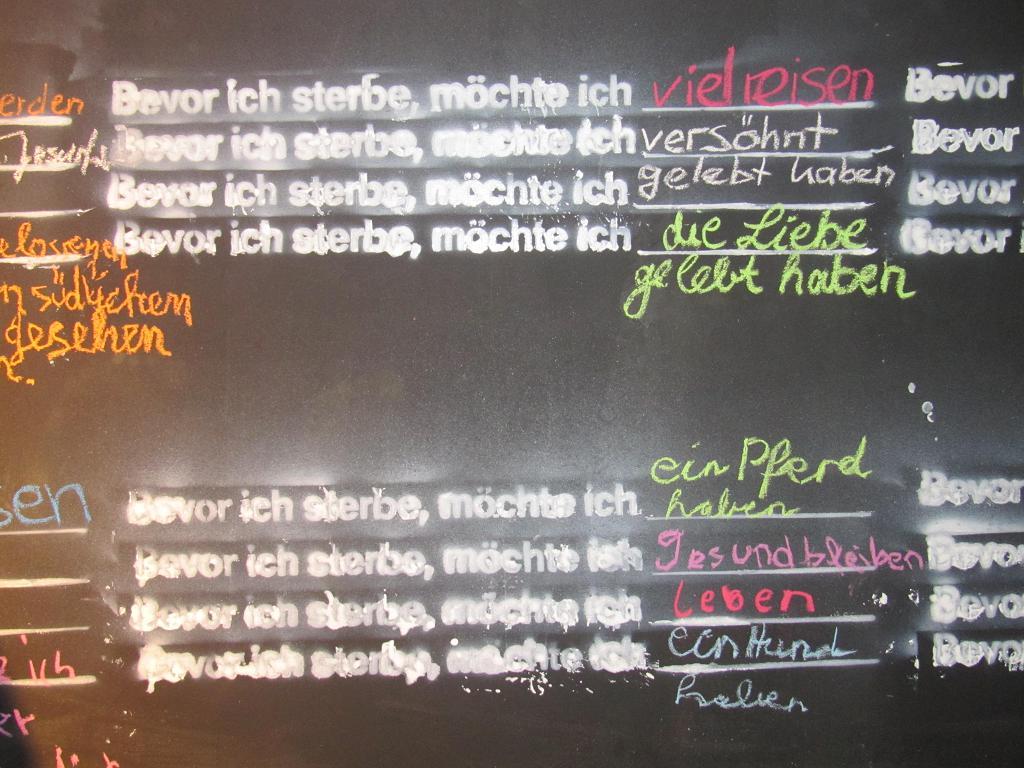 erden
Bevor ich sterbe, möchte ich viel reisen
Bevor
Bevor ich sterbe, möchte ich versöhnt
Bevor
gelebt haben
Bevor ich sterbe, möchte ich
Bevor
Bevor ich sterbe, möchte ich die Liebe
Bevor
gelebt haben
n südlichen
gesehen
ein Pferd
sen
Bevor ich sterbe, möchte ich haben
Bevor
Bevor ich sterbe, möchte ich gesund bleiben
Bevor
Bevor ich sterbe, möchte ich Leben
Bevor
Bevor ich sterbe, möchte ich ein Hund
Bevor
ich
haben
er